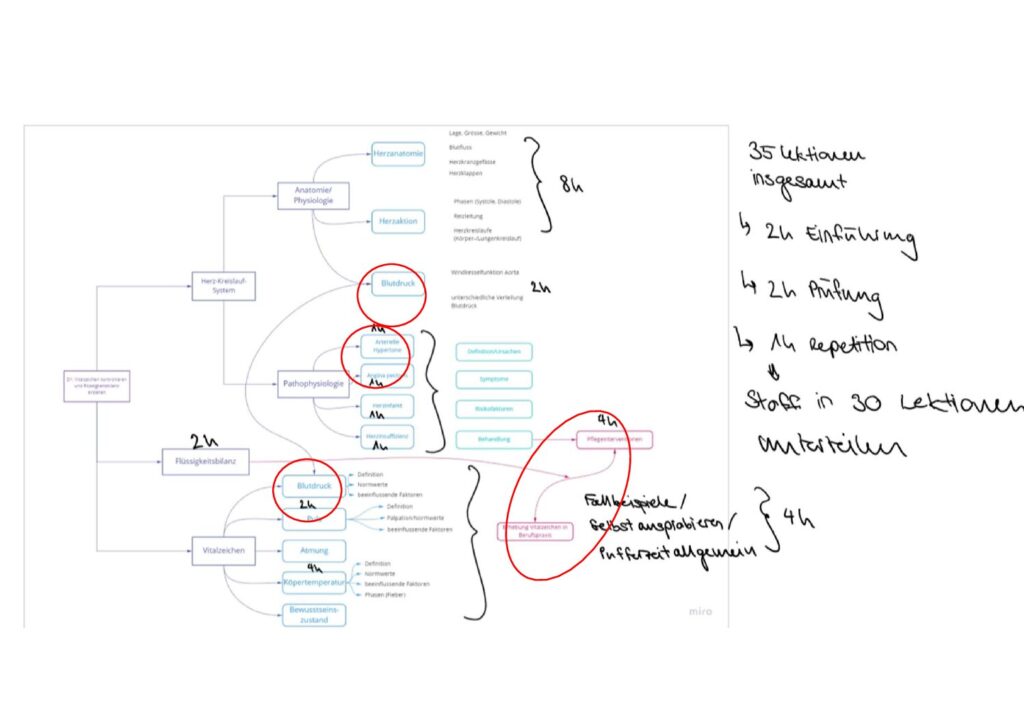 Lage, Grösse, Gewicht
Herzanatomie
Blutfluss
Herzkranzgefässe
Herzklappen
8h
Anatomie/
Physiologie
Phasen (Systole, Diastole)
Herzaktion
Reizleitung
Herzkreisläufe
(Körper-/Lungenkreislauf)
Herz-Kreislauf-
System
Blutdruck
Windkesselfunktion aorta
2h
unterschiedliche Verteilung
Blutdruck
1h
Arterielle
Hypertonie
Definition/Ursachen
Pathophysiologie
Angina pectoris
1h
Symptome
Herzinfarkt
1h
Risikofaktoren
Herzinsuffizienz
1h
Behandlung
4h
Pflegeinterventionen
und Flüssigkeitsbilanz
erstellen
2h
Flüssigkeitsbilanz
Blutdruck
Definition
Normwerte
beeinflussende Faktoren
2h
Definition
Palpation/Normwerte
beeinflussende Faktoren
Erhebung Vitalzeichen in
Berufspraxis
Fallbeispiele/
Selbst ausprobieren/
Pufferzeit allgemein
4h
Vitalzeichen
Atmung
4h
Köpertemperatur
Definition
Normwerte
beeinflussende Faktoren
Phasen (Fieber)
Bewusstseins-
zustand
miro
35 Lektionen
insgesamt
↳ 2h Einführung
↳ 2h Prüfung
↳ 1h Repetition
Stoff in 30 Lektionen
unterteilen